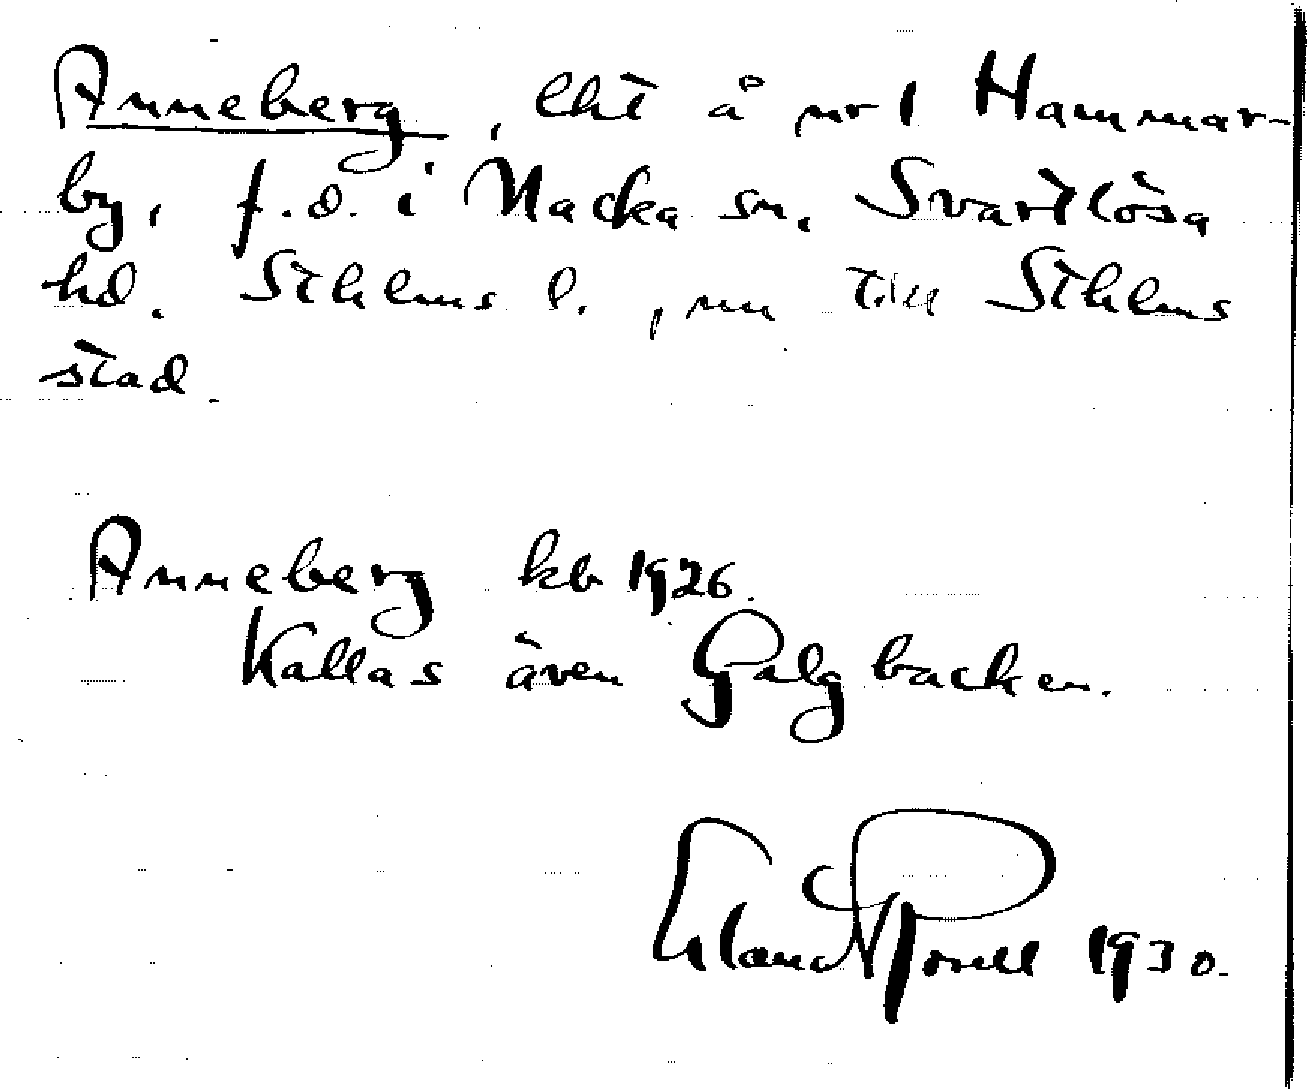 Anneberg, lht å nr 1 Hammar-
by, f.d. i Nacka sn, Svartlösa
hd. Sthlms l., nu till Sthlms
stad.
Anneberg kb 1926.
Kallas även Galgbacken.
Erland Rosell 1930.